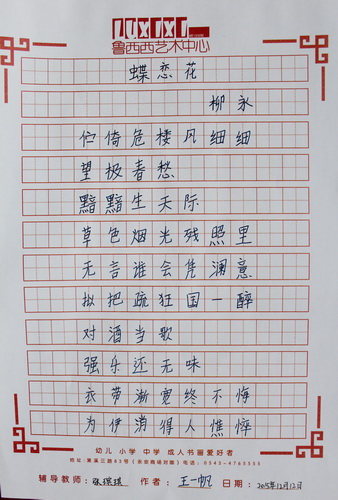 LUXIXI
鲁西西艺术中心
蝶恋花
柳永
伫倚危楼风细细
望极春愁
黯黯生天际
草色烟光残照里
无言谁会凭澜意
拟把疏狂国一醉
对酒当歌
强乐还无味
衣带渐宽终不悔
为伊消得人憔悴
幼儿 小学 中学 成人书画爱好者
辅导教师: 张琪琪 作者: 王一帆 日期: 2015年12月12日